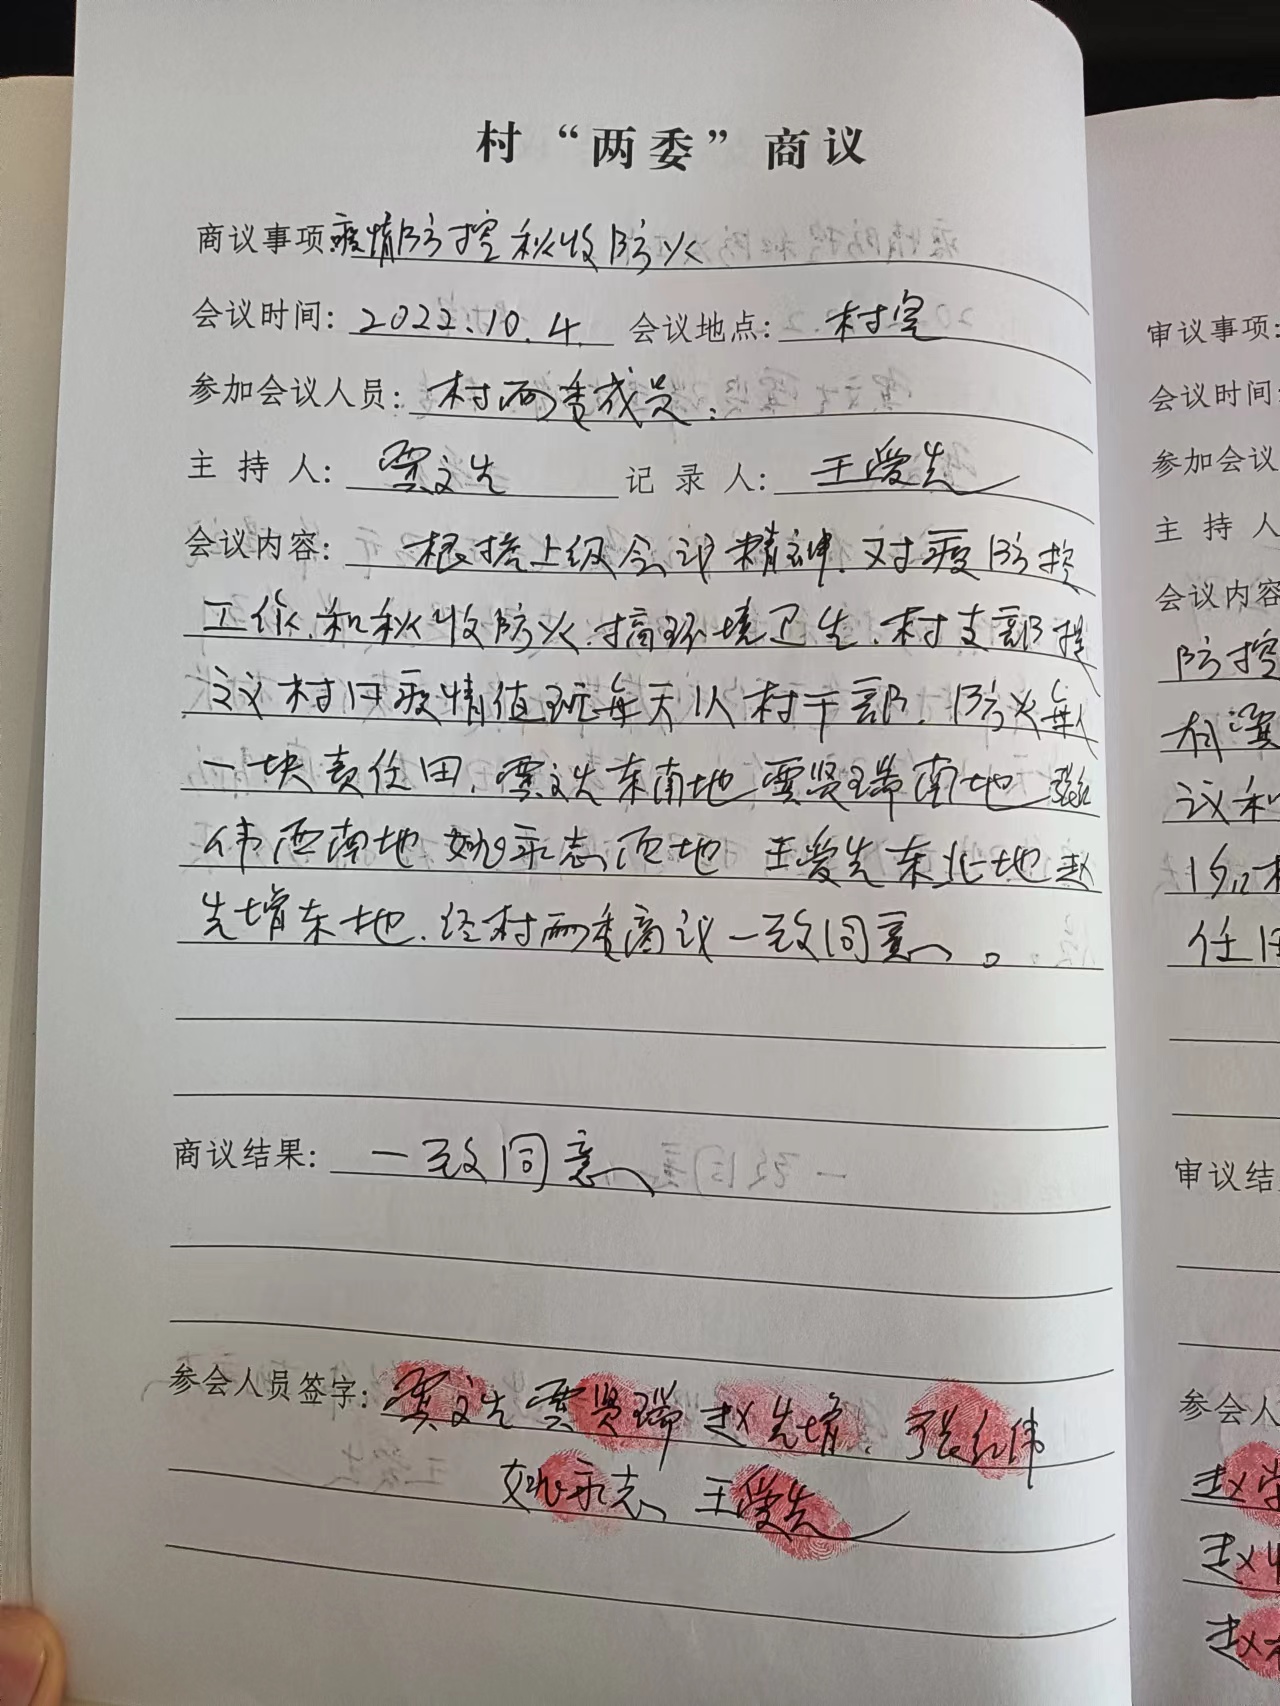 村“两委”商议
商议事项:疫情防控秋收防火
会议时间: 2022.10.4. 会议地点: 村室
参加会议人员: 村两委成员.
主持人: 贾文先 记录人: 王爱先
会议内容: 根据上级会议精神.对疫防控
工作.和秋收防火.搞环境卫生.村支部提
议村口疫情值班每天1人村干部.防火每人
一块责任田.贾文先东南地贾贤瑞南地张红
伟西南地姚永志西地王爱先东北地赵
先增东地.经村两委商议一致同意。
商议结果: 一致同意
参会人员签字: 贾文先 贾贤瑞 赵先增. 张红伟
姚永志 王爱先
审议事项:
会议时间:
参加会议
主持人
会议内容
防控
议和
审议结
参会人
赵
赵
赵